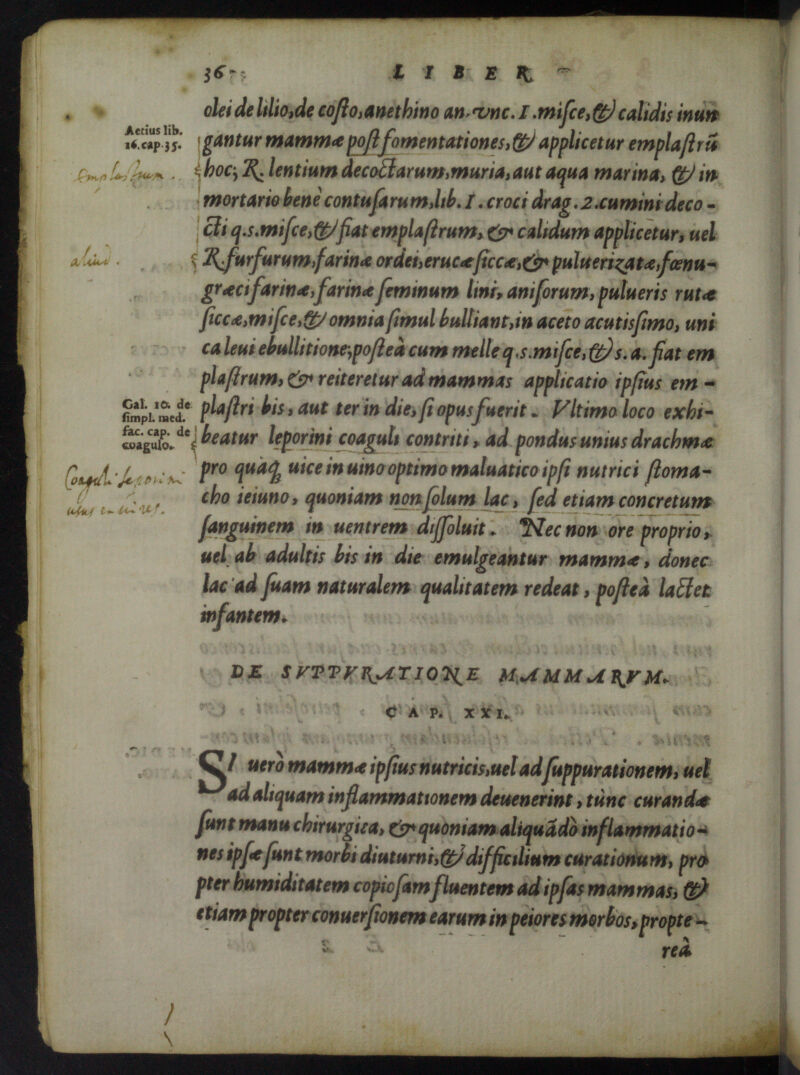 36
LIBER
olei de lilio, de costo, anethino an. vnc. 1. misce, & calidis inun
Aetius lib.
16. cap. 35.
gantur mammæ post fomentationes, & applicetur emplastrũ
Emplastrum.
hoc; ℞. lentium decoctarum, muria, aut aqua marina, & in
mortario benè contusarum, lib. 1. croci drag. 2. cumini deco-
cti q.s. misce, & fiat emplastrum, & calidum applicetur, uel
aliud.
℞ furfurum, farinæ ordei, erucæ siccæ, & puluerizatæ, fœnu-
græci farinæ, farinæ seminum lini, anisorum, pulueris rutæ
siccæ, misce, & omnia simul bulliant, in aceto acutissimo, uni
ca leui ebullitione; posteà cum melle q.s. misce, & s. a. fiat em
plastrum, & reiteretur ad mammas applicatio ipsius em-
Gal. 10. de
simpl. med.
fac. cap. de
coagulo.
plastri bis, aut ter in die, si opus fuerit. Vltimo loco exhi-
beatur leporini coaguli contriti, ad pondus unius drachmæ
Coaguli leporini
usus
pro quaq; uice in uino optimo maluatico ipsi nutrici stoma-
cho ieiuno, quoniam non solum lac, sed etiam concretum
sanguinem in uentrem dissoluit. Nec non ore proprio,
uel ab adultis bis in die emulgeantur mammæ, donec
lac ad suam naturalem qualitatem redeat, posteà lactet
infantem.
DE SVPPVRATIONE MAMMARVM.
CAP. XXI.
SI uerò mammæ ipsius nutricis, uel ad suppurationem, uel
ad aliquam inflammationem deuenerint, tùnc curandæ
sunt manu chirurgica, & quoniam aliquãdò inflammatio-
nes ipsæ sunt morbi diuturni, & difficilium curationum, pro
pter humiditatem copiosam fluentem ad ipsas mammas, &
etiam propter conuersionem earum in peiores morbos, propte-
reà